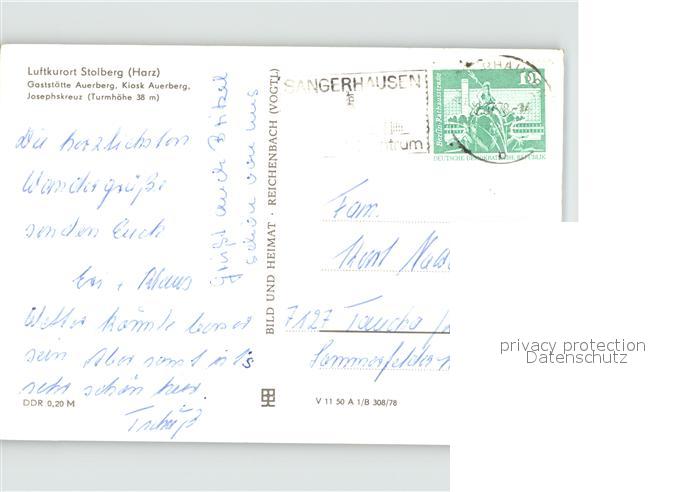 Luftkurort Stolberg (Harz)
Gaststätte Auerberg, Kiosk Auerberg,
Josephskreuz (Turmhöhe 38 m)
Die herzlichsten
Wandergrüße
senden Euch
Klaus
Wetter könnte besser
sein Aber sonst ist's
sehr schön hier.
Tschüß
Grüßt auch
schön von uns
DDR 0,20 M
BILD UND HEIMAT · REICHENBACH (VOGTL)
V 11 50 A 1/B 308/78
SANGERHAUSEN
ntrum
10
Berlin, Rathausstraße
DEUTSCHE DEMOKRATISCHE REPUBLIK
Fam.
Horst
7127 Taucha
privacy protection
Datenschutz